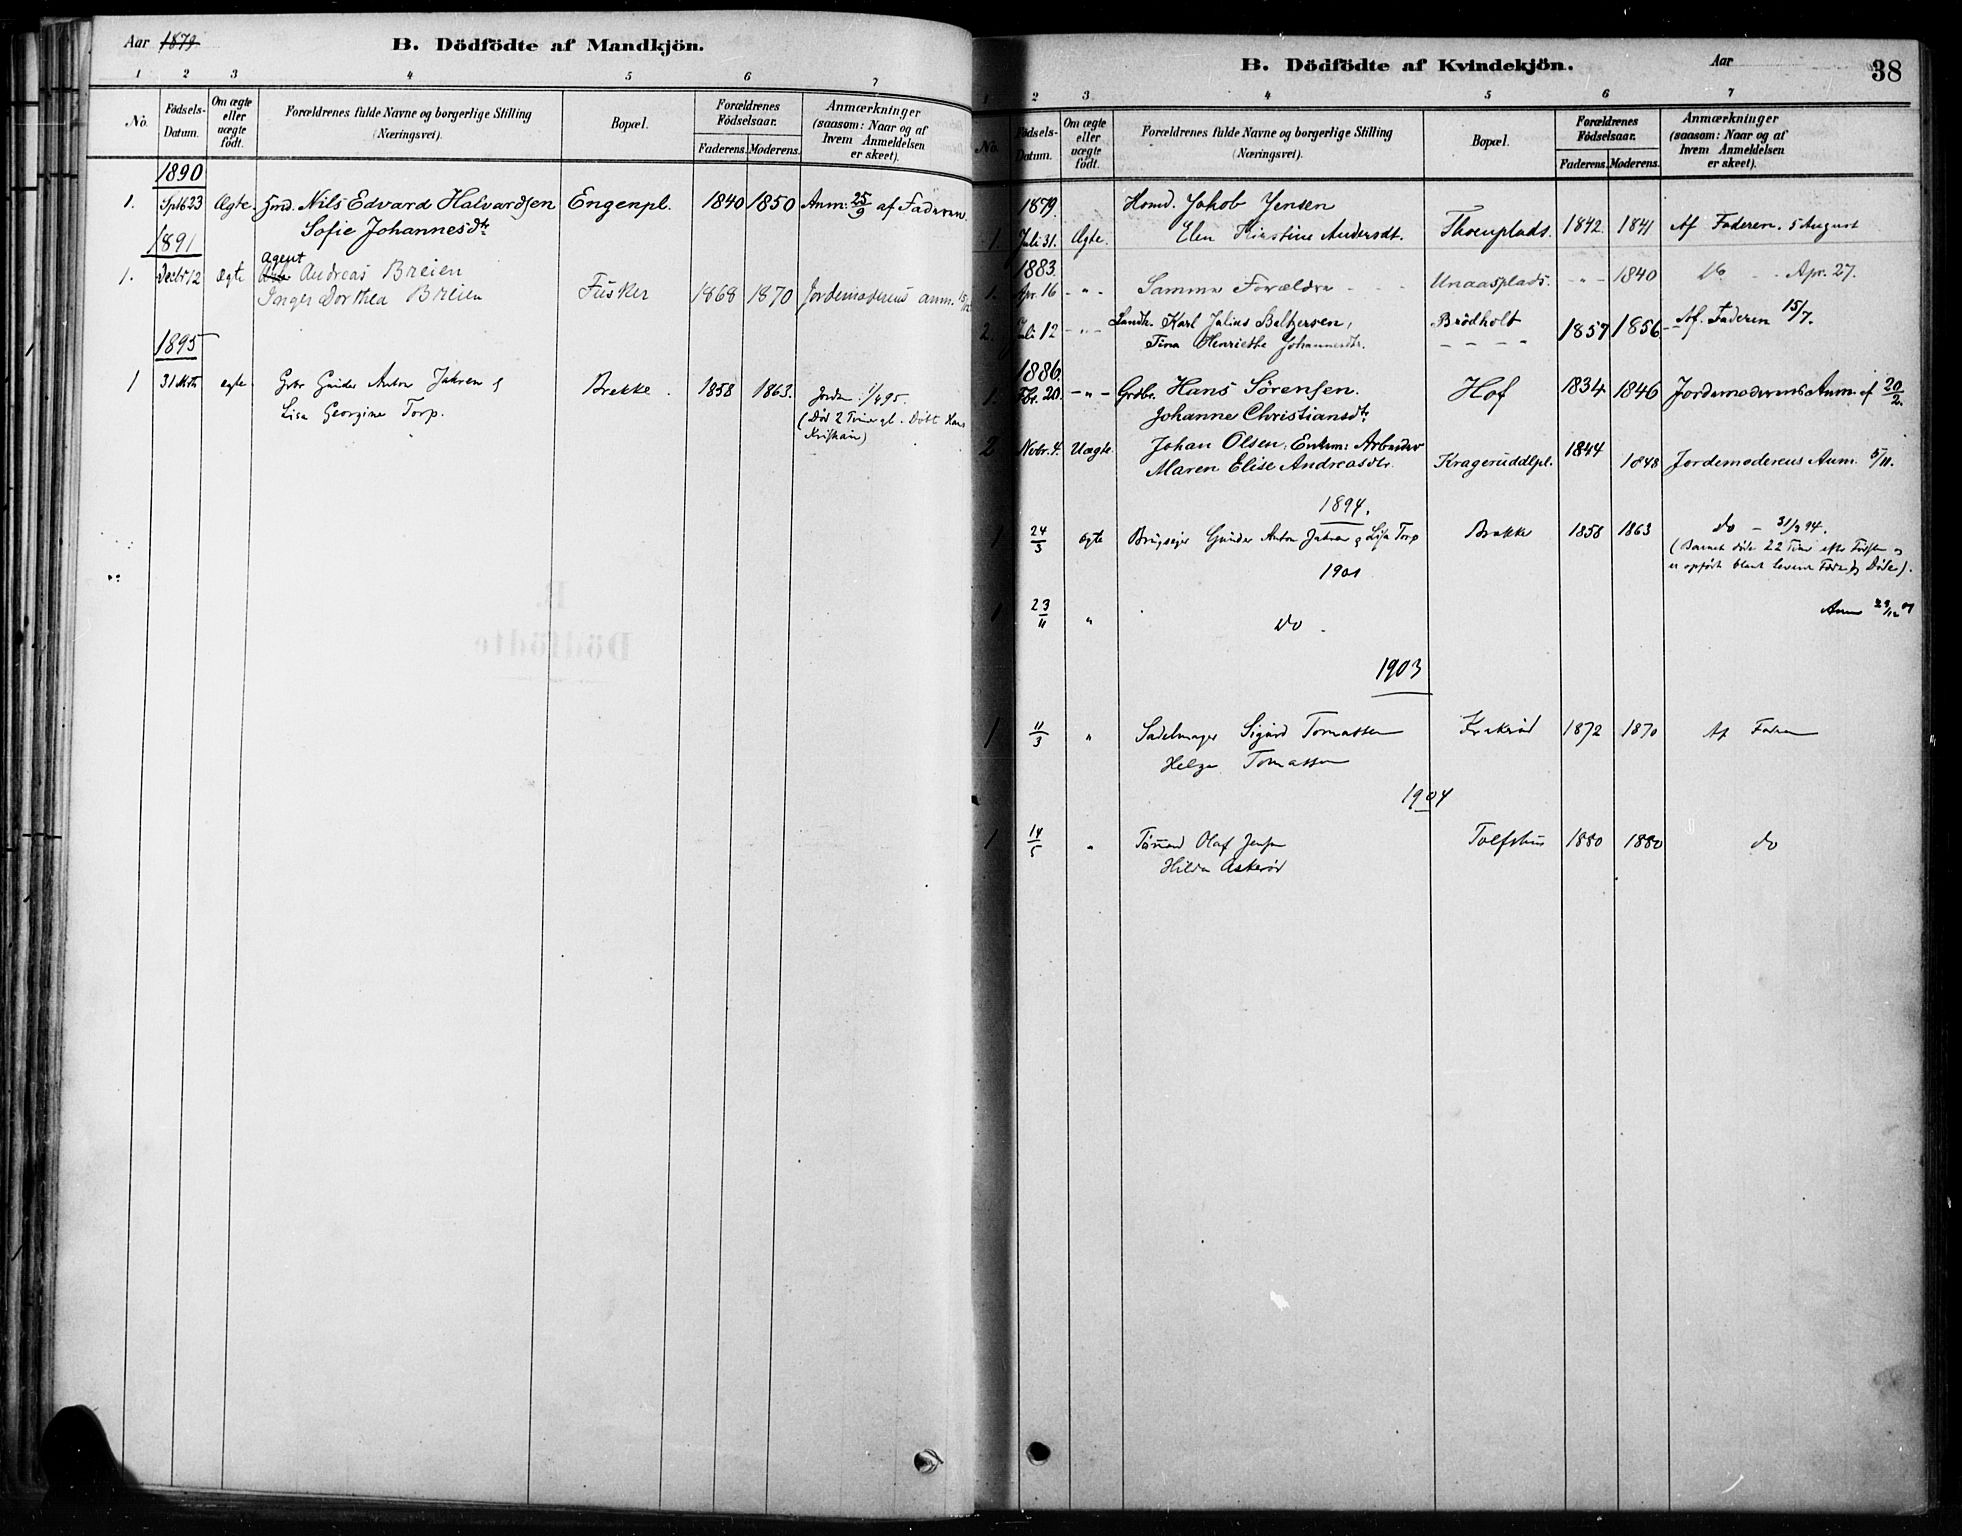 Aar 1879
B. Dödfödte af Mandkjön.
1 2 3 4 5 6 7
No. Födsels-Datum. Om ægte eller uægte födt. Forældrenes fulde Navne og borgerlige Stilling (Næringsvei). Bopæl. Forældrenes Födselsaar. Faderens. Moderens. Anmærkninger (saasom: Naar og af hvem Anmeldelsen er skeet).
1890
1. Sptb 23 Ægte. Nils Edvard Halvardsen Engenpl. 1840 1850 Anm: 25/9 af Faderen.
Sofie Johannesdtr
1891
Agent
1. Decbr 12 Ægte Andreas Breien
Inger Dorthea Breien Fusker 1868 1870 Jordemoderens anm. 15/12
1895
1 31 Mrts ægte Grbr Gunder Anton Jahren g Brekke. 1858 1863. Jordm 1/4 95.
Lisa Georgine Torp. (Död 2 Timer gl. Döbt Hans
Kristian)
B. Dödfödte af Kvindekjön.
Aar
38
1 2 3 4 5 6 7
No. Födsels-Datum. Om ægte eller uægte födt. Forældrenes fulde Navne og borgerlige Stilling (Næringsvei). Bopæl. Forældrenes Födselsaar. Faderens. Moderens. Anmærkninger (saasom: Naar og af hvem Anmeldelsen er skeet).
1879. Homd. Jakob Jensen
1. Juli 31. Ægte. Elen Kirstine Andersdt. Thoenplads. 1842 1841 Af Faderen. 5 August
1883.
1. Apr. 16 - " - Samme Forældre - - - Unaasplads. - " - 1840 Do - - Apr. 27.
2. Juli 12 - " - Landh. Karl Julius Beltzersen, Brödholt 1857 1856 Af. Faderen 15/7.
Tina Henriette Johannesdtr. - - - -
1886.
1. Fbr. 20. - " - Grdbr. Hans Sörensen. Hof 1834 1846 Jordemoderens Anm. af 20/2.
Johanne Christiansdtr
2 Novbr. 4. Uægte. Johan Olsen, Enkem: Arbeider 1844
Maren Elise Andreasdtr. Krageruddlpl. 1848 Jordemoderens Anm. 5/11.
1894.
1 24/3 ægte Brugseier Gunder Anton Jahren g Lisa Torp Brekke 1858 1863 do - 31/3 94.
(Barnet döde 22 Timer efter Födslen og
er opfört blant levende Födte og Döde).
1901
1 23/11 " do. Anm 29/12 01
1903
1 11/3 " Sadelmager Sigurd Tomassen Krakröd 1872 1870 Af Faderen
Helga Tomassen
1904
1 14/5 " Olaf Jensen Tolfshus 1880 1880 do
Hilda Askeröd